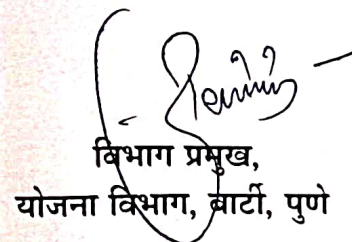 विभाग प्रमुख,
योजना विभाग, बार्टी, पुणे